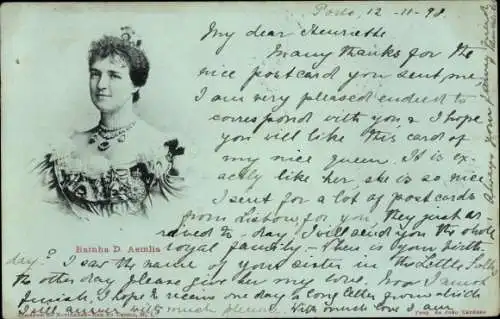 Porto, 12-11-98
My dear Henriette
Many thanks for the
nice postcard you sent me
I am very pleased endeed to
correspond with you & I hope
you will like this card of
my nice queen. It is ex-
actly like her, she is so nice.
I sent for a lot of postcards
from Lisbon for you, they just ar-
Rainha D. Aemlia
rived to-day, I will send you the whole
royal family - When is your birth-
day? I saw the name of your sister in the Little Folks
the other day please give her my love. Now I must
finish, I hope to receive one day a long letter from which
I will answer with much pleasure. With much love I am